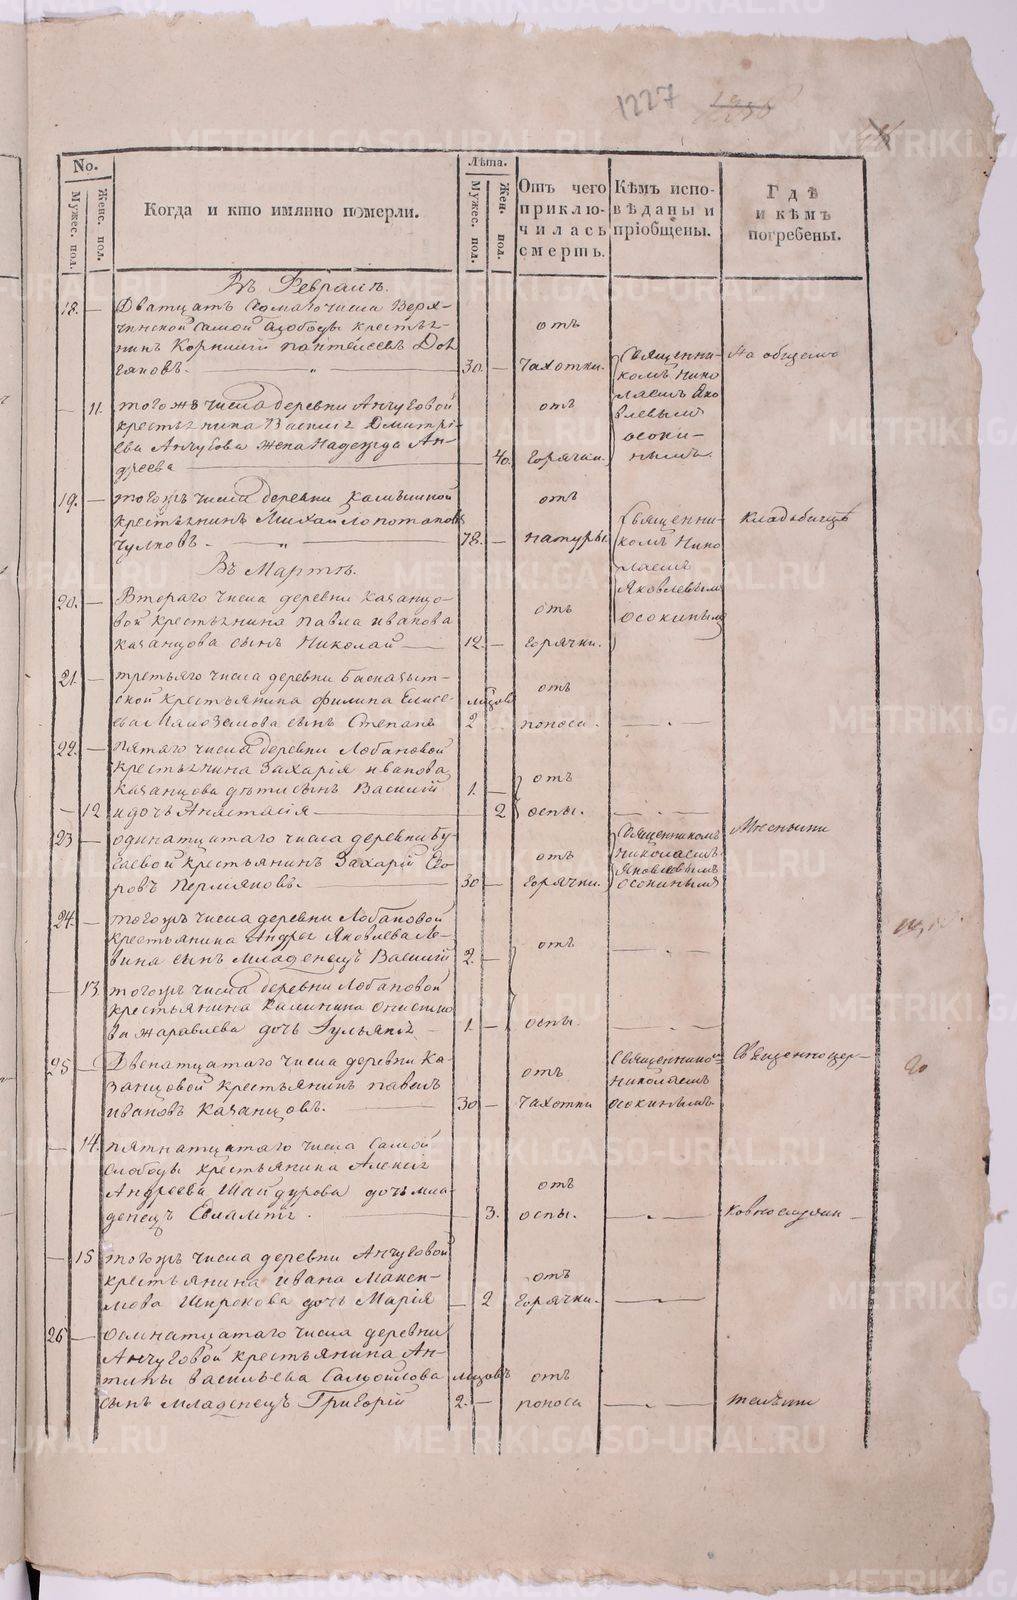 1227
No.
Мужес. пол.
Женс. пол.
Когда и кто имянно померли.
Лѣта.
Мужес. пол.
Жен. пол.
Отъ чего приклю- чилась смерть.
Кѣмъ испо- вѣданы и пріобщены.
Гдѣ и кѣмъ погребены.
Въ Февралѣ.
18. — Дватцать седмаго числа
самой слободы крестья-
нинъ Корнилій Пантелеевъ
30. — отъ чахотки. Священни-
комъ Нико-
лаемъ Яко-
влевымъ
Осоки-
нымъ.
На общемъ
— 11. тогожъ числа деревни Анчуговой
крестьянина Василья Дмитрі-
ева Анчугова жена Надежда Ан-
дреева — 40. отъ горячки.
19. — тогожъ числа деревни
крестьянинъ Михайло Потаповъ
Чулковъ. — 78. — отъ натуры. Священни-
комъ Нико-
лаемъ
Яковлевымъ
Осокинымъ
кладбищѣ
Въ Мартѣ.
20. — Втораго числа деревни Казанцо-
вой крестьянина Павла Иванова
Казанцова сынъ Николай — 12. — отъ горячки.
21. — третьяго числа деревни
крестьянина Филипа Елисе-
ева сынъ Степанъ 2 отъ поноса. — „ —
22. — пятаго числа деревни Лобановой
крестьянина Захарія Иванова
Казанцова дѣти сынъ Василий 1. — отъ
— 12 и дочь Анастасія — 2 оспы. — „ —
23 — одинатцатаго числа деревни Бу-
гаевой крестьянинъ Захарій Его-
ровъ Пермяковъ. — 30 — отъ горячки. Священникомъ
Николаемъ
Яковлевымъ
Осокинымъ
Мѣстными
24. — тогожъ числа деревни Лобановой
крестьянина Андрея Яковлева Ле-
вина сынъ младенецъ Василій 2. — отъ — „ —
— 13 тогожъ числа деревни Лобановой
крестьянина Калинина
ва Жаравлева дочь Гульянія — 1. — оспы. — „ —
25 — Двенатцатаго числа деревни Ка-
занцовой крестьянинъ Павелъ
Ивановъ Казанцовъ. — 30 — отъ чахотки Священникомъ
Николаемъ
Осокинымъ
Священноцер-
20
— 14. пятнатцатаго числа самой
слободы крестьянина Алексѣя
Андреева Шайдурова дочь мла-
денецъ Евлампія. — 3. отъ оспы. — „ —
ковнослужи-
— 15 тогожъ числа деревни Анчуговой
крестьянина Ивана Макси-
мова Широкова дочь Марія — 2 отъ горячки. — „ —
26 — осмнатцатаго числа деревни
Анчуговой крестьянина Ан-
типы Васильева Самойлова
сынъ младенецъ Григорій 2. — отъ поноса — „ —
тельми
METRIKI.GASO-URAL.RU